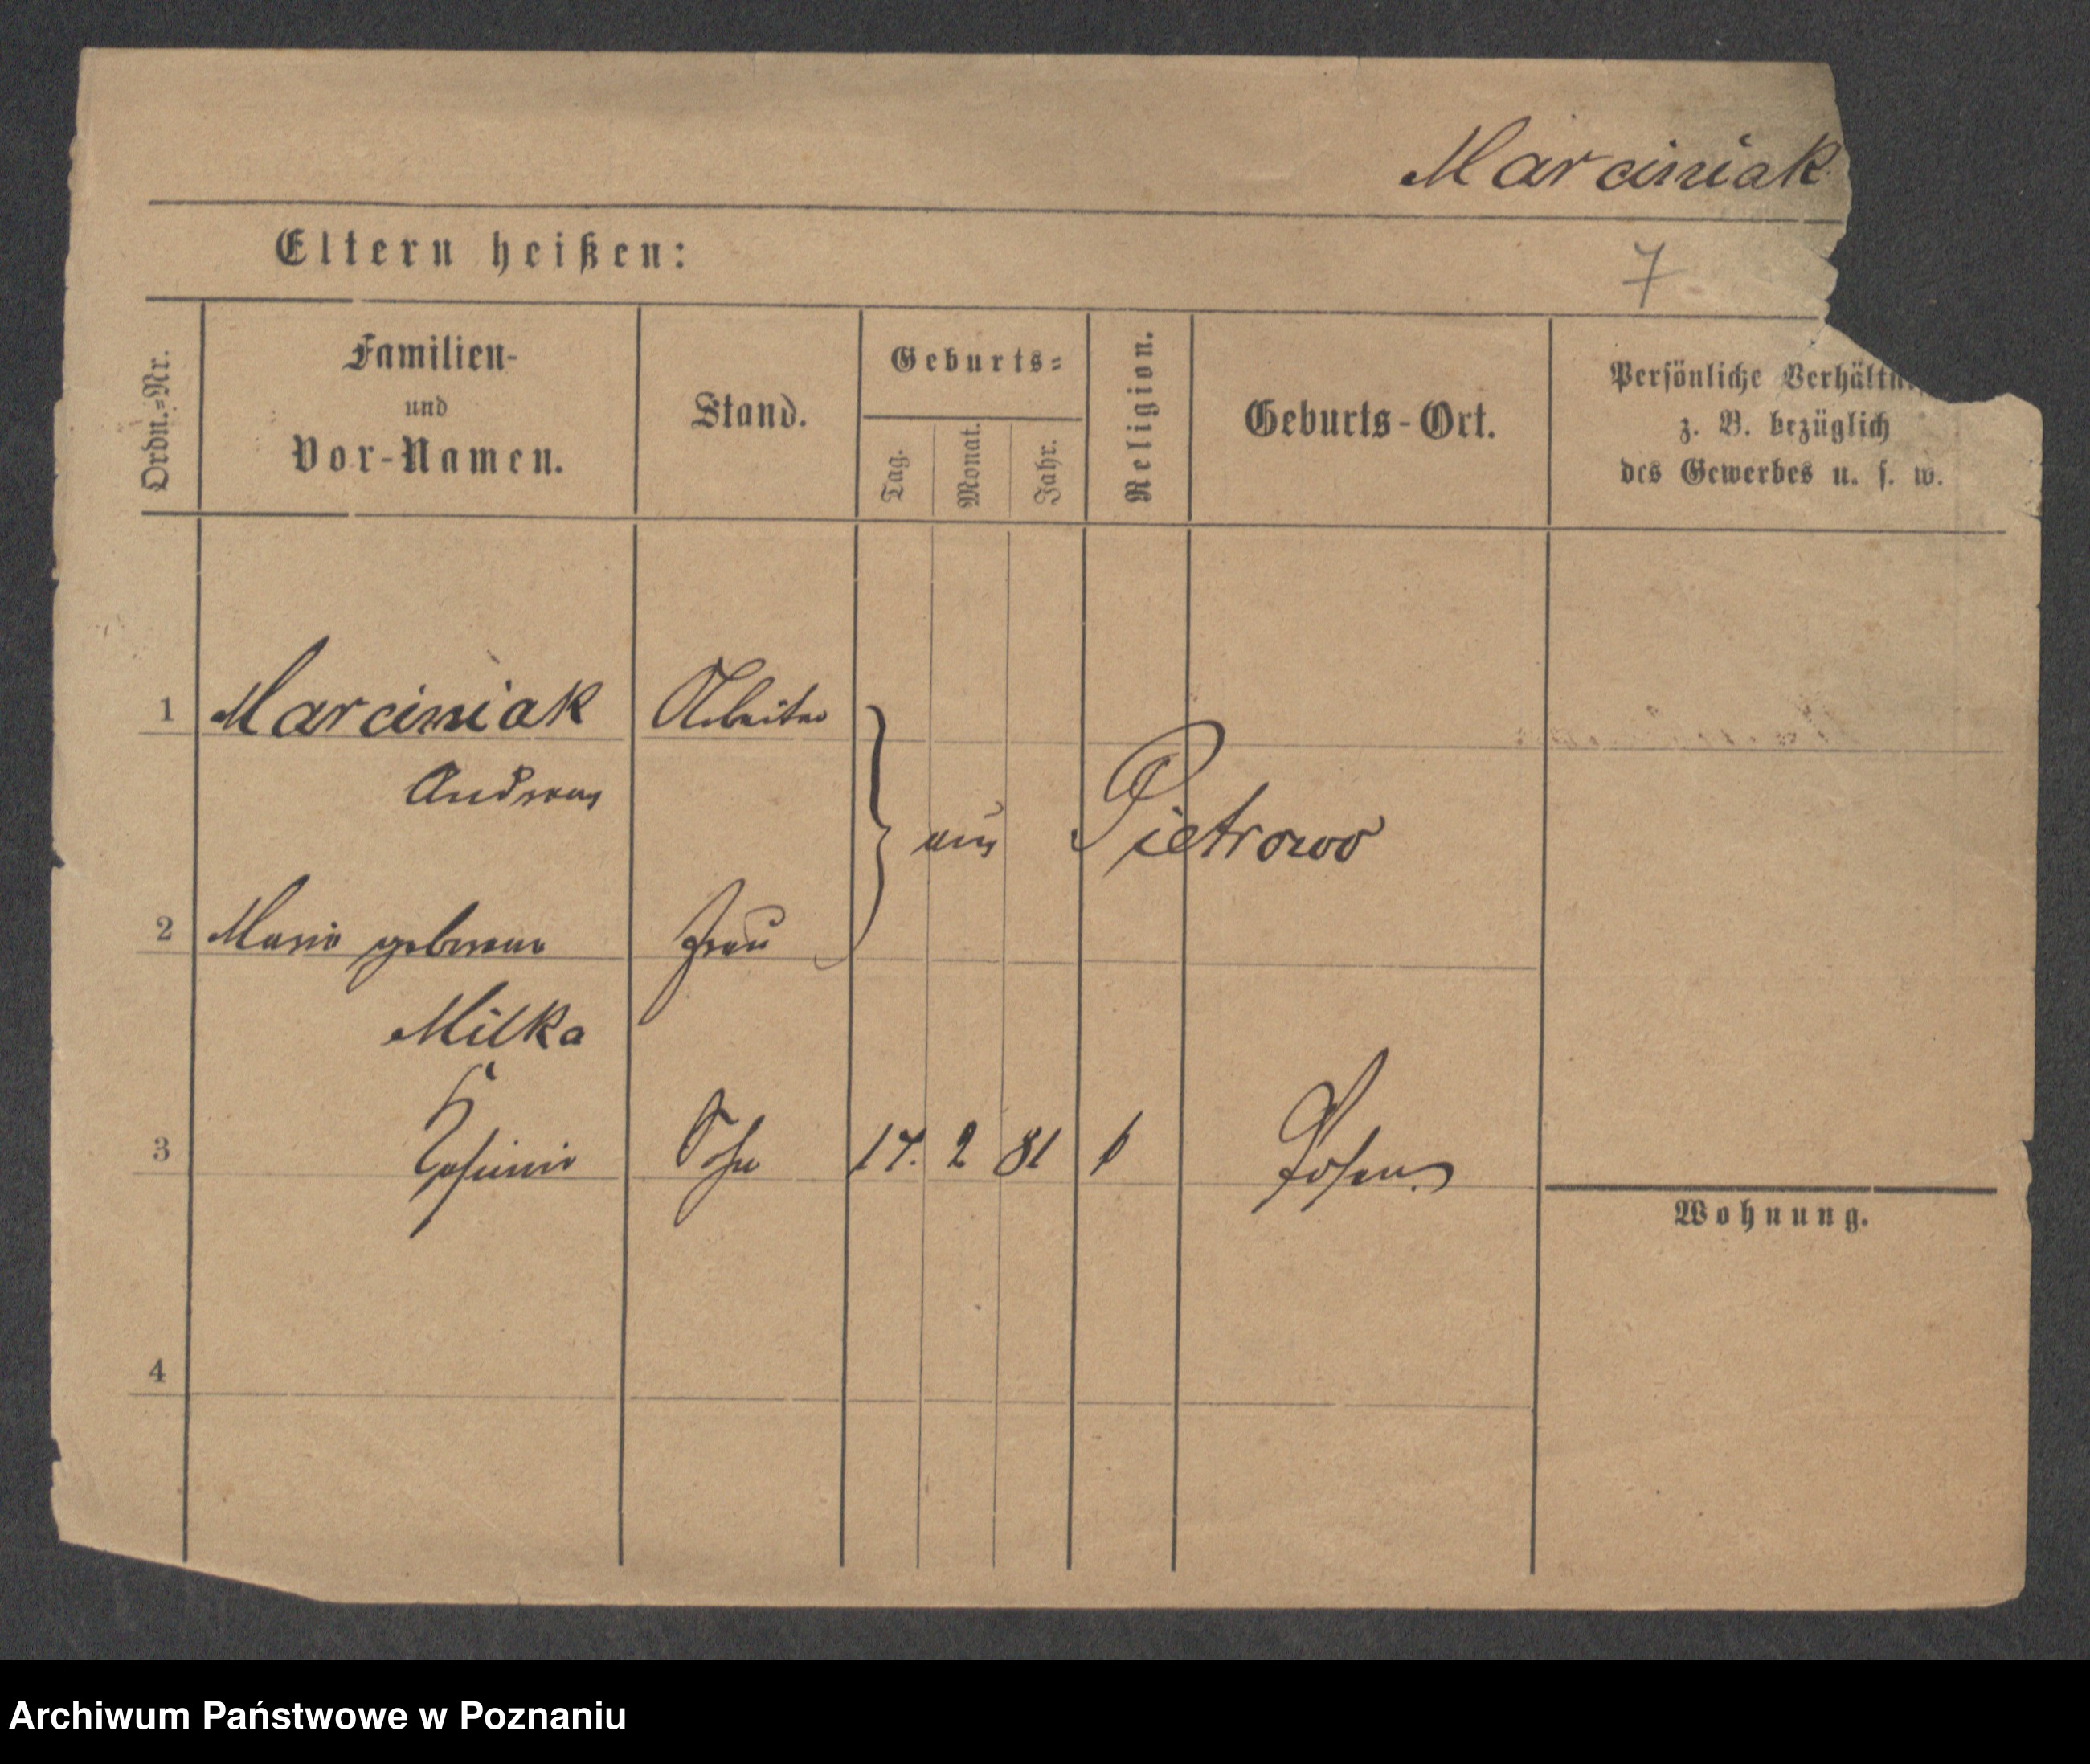 Marciniak
Eltern heißen:
7
Ordn.-Nr.
Familien-
und
Vor-Namen.
Stand.
Geburts-
Tag.
Monat.
Jahr.
Religion.
Geburts-Ort.
Persönliche Verhältn
z. B. bezüglich
des Gewerbes u. s. w.
1 Marciniak Arbeiter
Andreas
aus Pietrowo
2 Marie geborene Frau
Milka
3 Casimir Sohn 17. 2 81 k Posen
Wohnung.
4
Archiwum Państwowe w Poznaniu